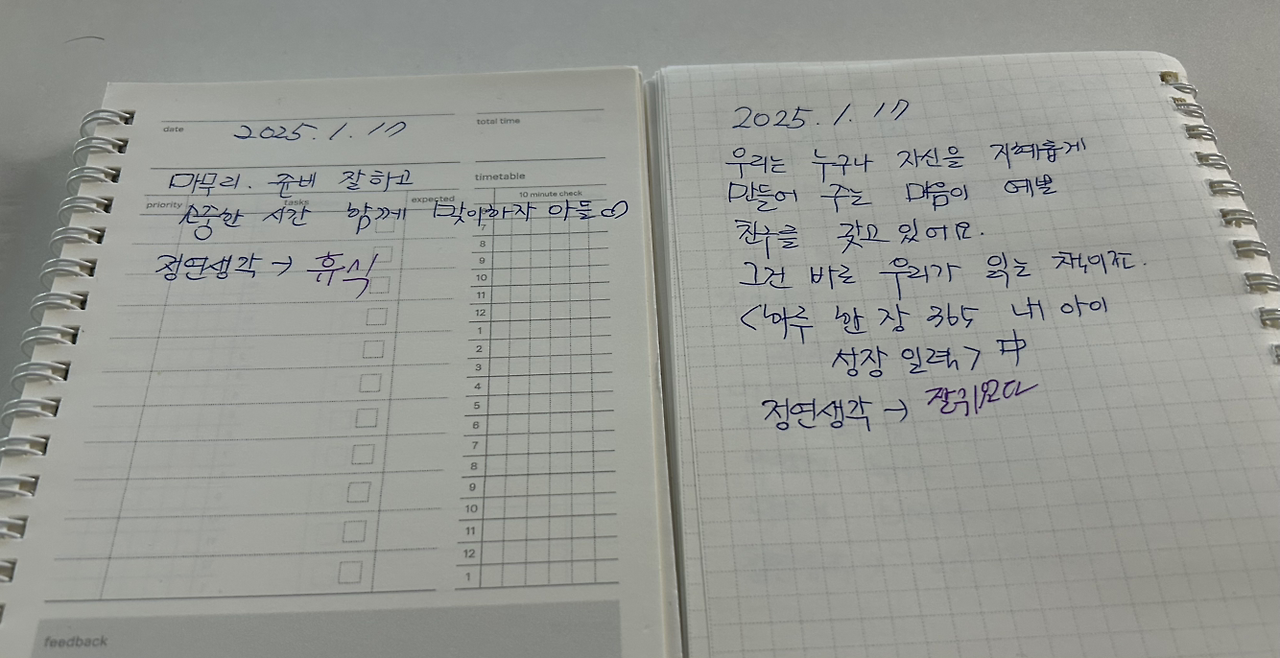 date 2025. 1. 17
total time
마무리. 준비 잘하고
timetable
priority tasks expected 10 minute check
소중한 시간 함께 맞이하자 아들♡
정연생각 → 휴식
7
8
9
10
11
12
1
2
3
4
5
6
7
8
9
10
11
12
1
feedback
2025. 1. 17
우리는 누구나 자신을 지혜롭게
만들어 주는 마음이 예쁜
친구를 갖고 있어요.
그건 바로 우리가 읽는 책이죠.
<하루 한 장 365 내 아이
성장 일력> 中
정연생각 →